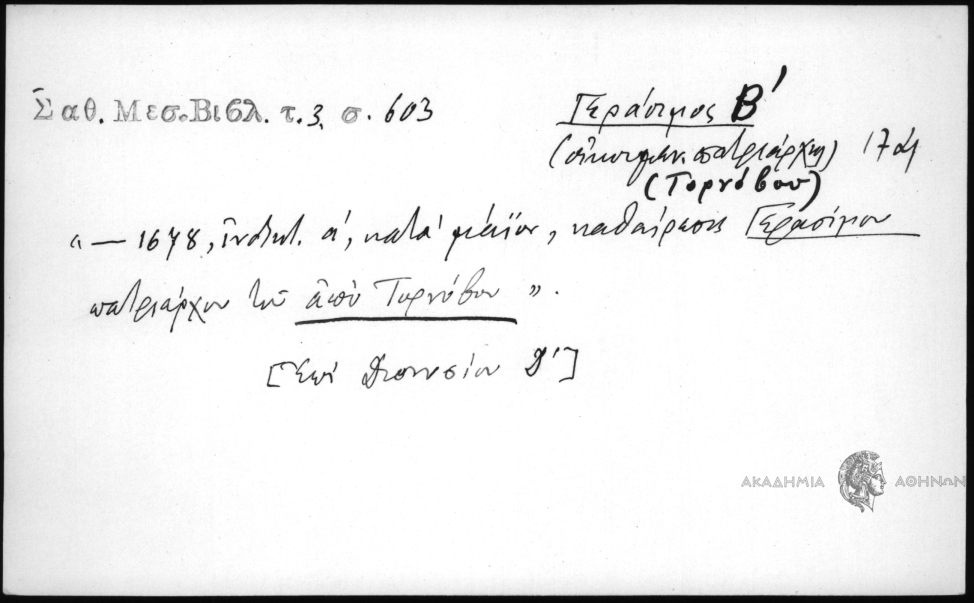 Σαθ. Μεσ. Βιβλ. τ. 3, σ. 603
Γεράσιμος Β'
(οἰκουμεν. πατριάρχης) 17 αἰ
(Τορνόβου)
«— 1678, ἰνδικτ. ά, κατὰ μάϊον, καθαίρεσις Γερασίμου
πατριάρχου τοῦ ἀπὸ Τορνόβου».
[Ἐπὶ Διονυσίου Δ']
ΑΚΑΔΗΜΙΑ ΑΘΗΝΩΝ